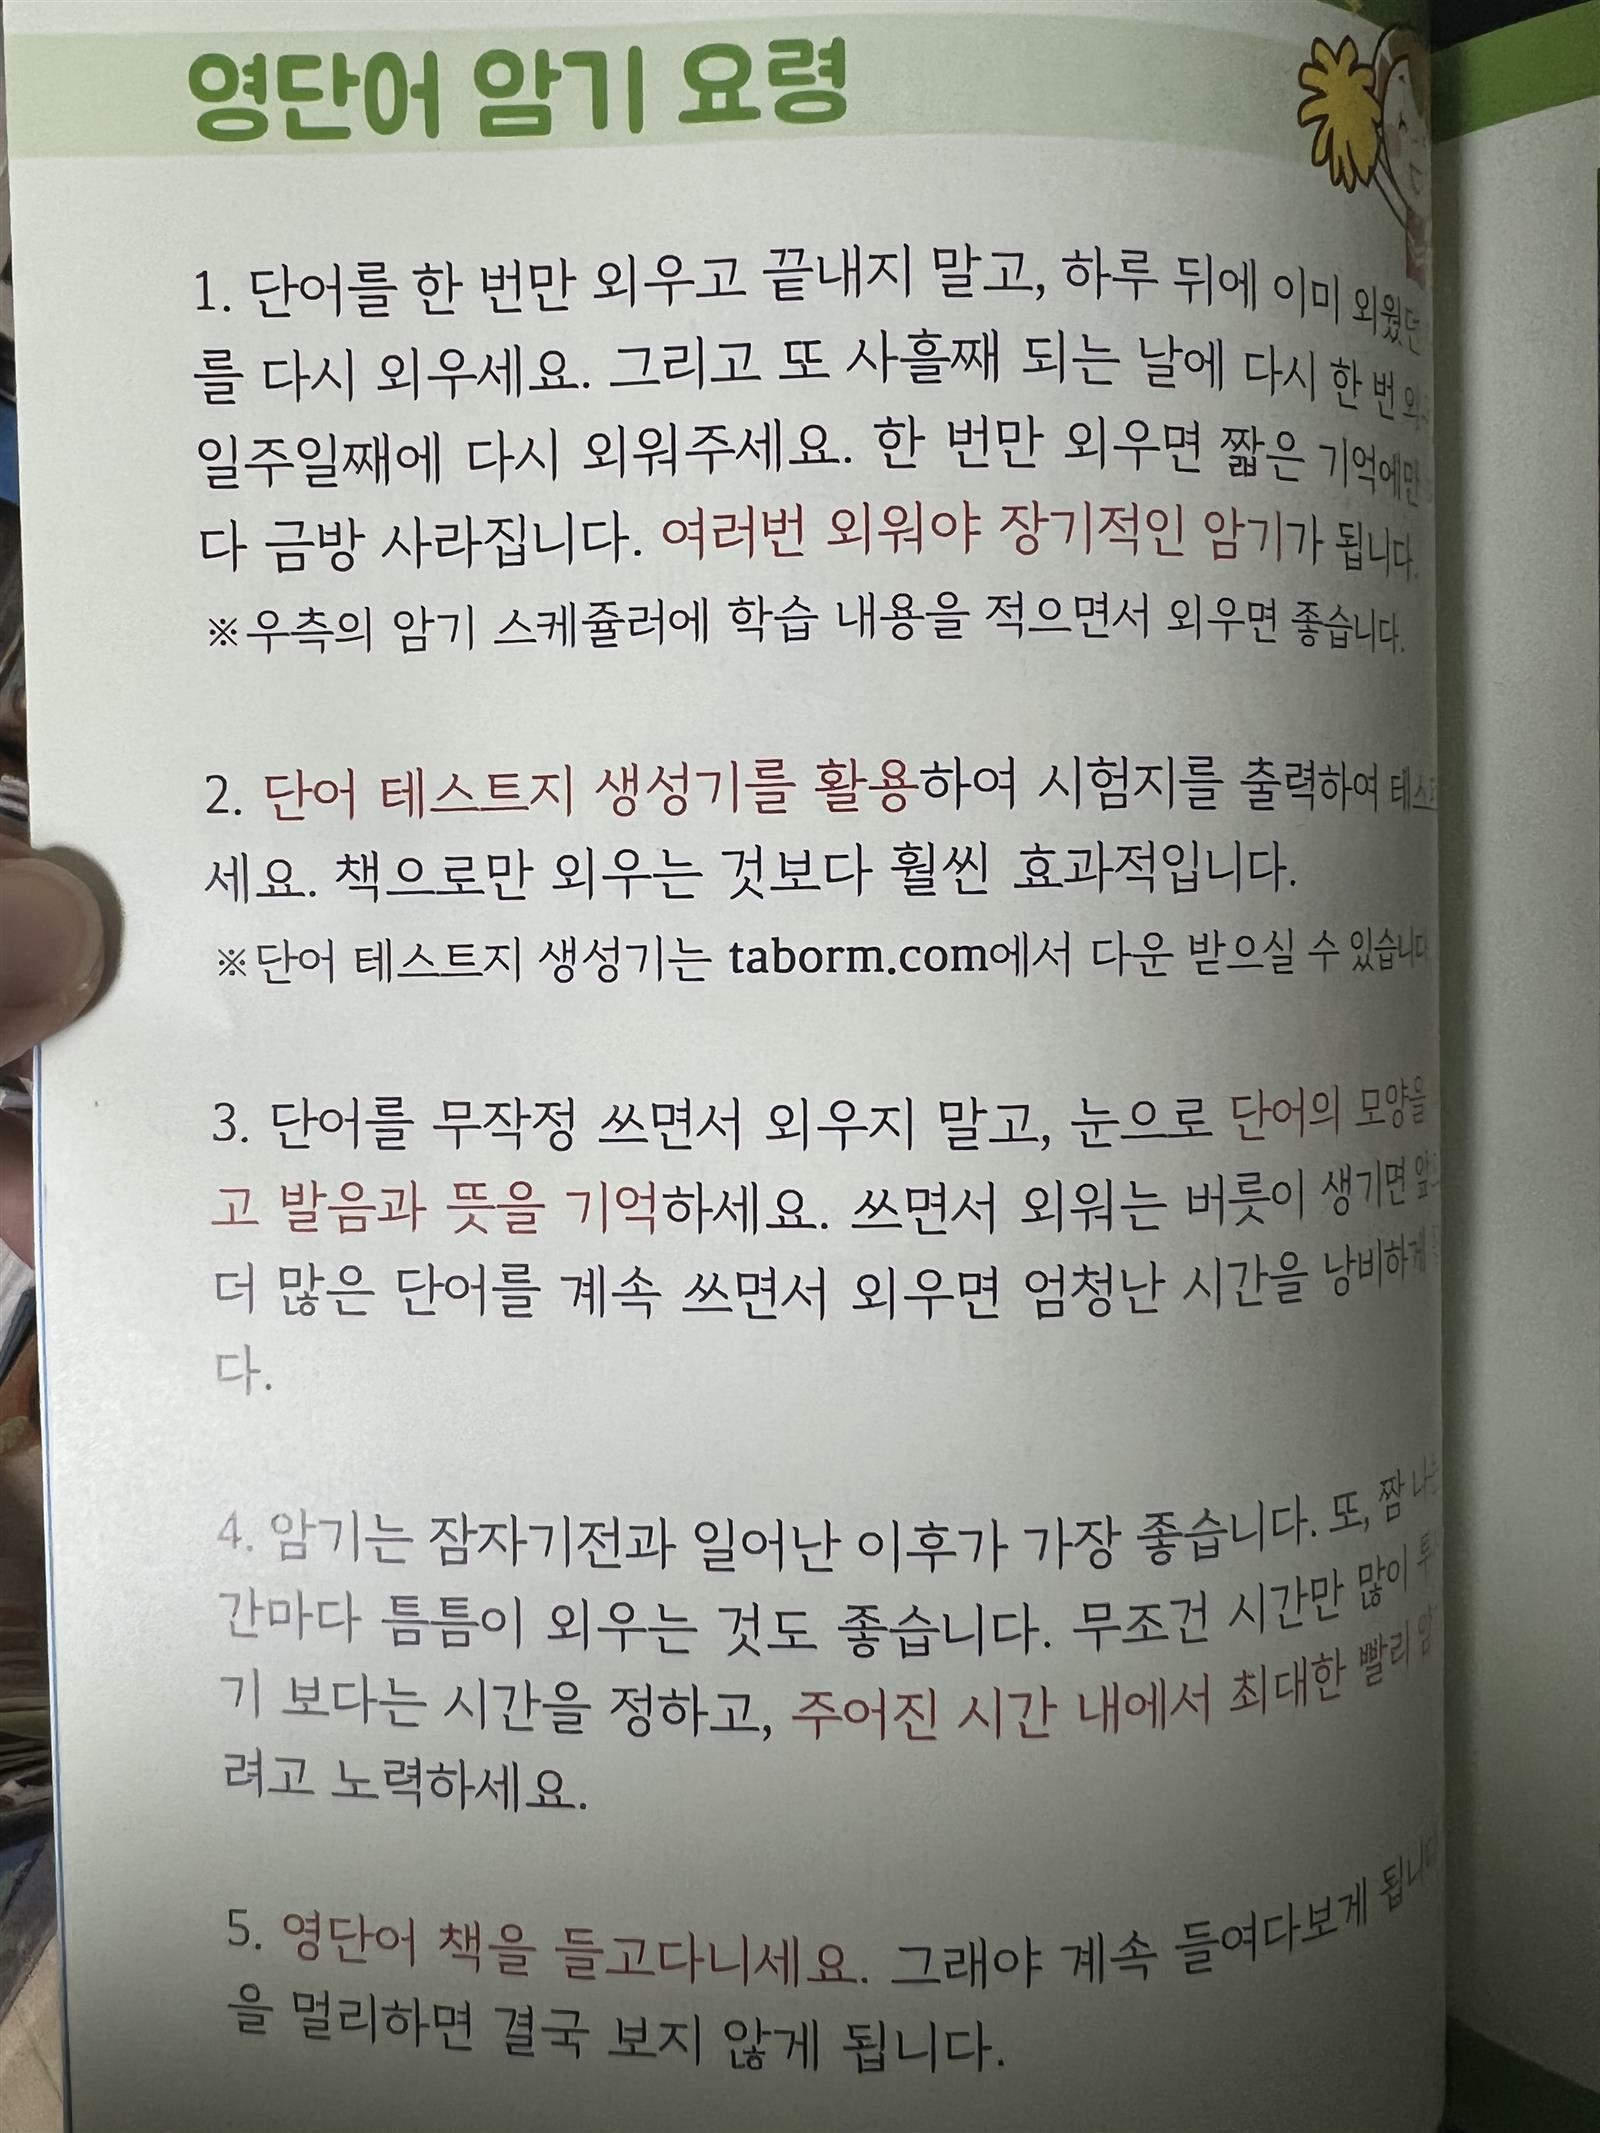 영단어 암기 요령
1. 단어를 한 번만 외우고 끝내지 말고, 하루 뒤에 이미 외웠던
를 다시 외우세요. 그리고 또 사흘째 되는 날에 다시 한 번
일주일째에 다시 외워주세요. 한 번만 외우면 짧은 기억에만
다 금방 사라집니다. 여러번 외워야 장기적인 암기가 됩니다.
※우측의 암기 스케쥴러에 학습 내용을 적으면서 외우면 좋습니다.
2. 단어 테스트지 생성기를 활용하여 시험지를 출력하여
세요. 책으로만 외우는 것보다 훨씬 효과적입니다.
※단어 테스트지 생성기는 taborm.com에서 다운 받으실 수 있습니다
3. 단어를 무작정 쓰면서 외우지 말고, 눈으로 단어의 모양을
고 발음과 뜻을 기억하세요. 쓰면서 외워는 버릇이 생기면
더 많은 단어를 계속 쓰면서 외우면 엄청난 시간을 낭비하게
다.
4. 암기는 잠자기전과 일어난 이후가 가장 좋습니다. 또, 짬
간마다 틈틈이 외우는 것도 좋습니다. 무조건 시간만 많이
기 보다는 시간을 정하고, 주어진 시간 내에서 최대한 빨리
려고 노력하세요.
5. 영단어 책을 들고다니세요. 그래야 계속 들여다보게 됩니다
을 멀리하면 결국 보지 않게 됩니다.